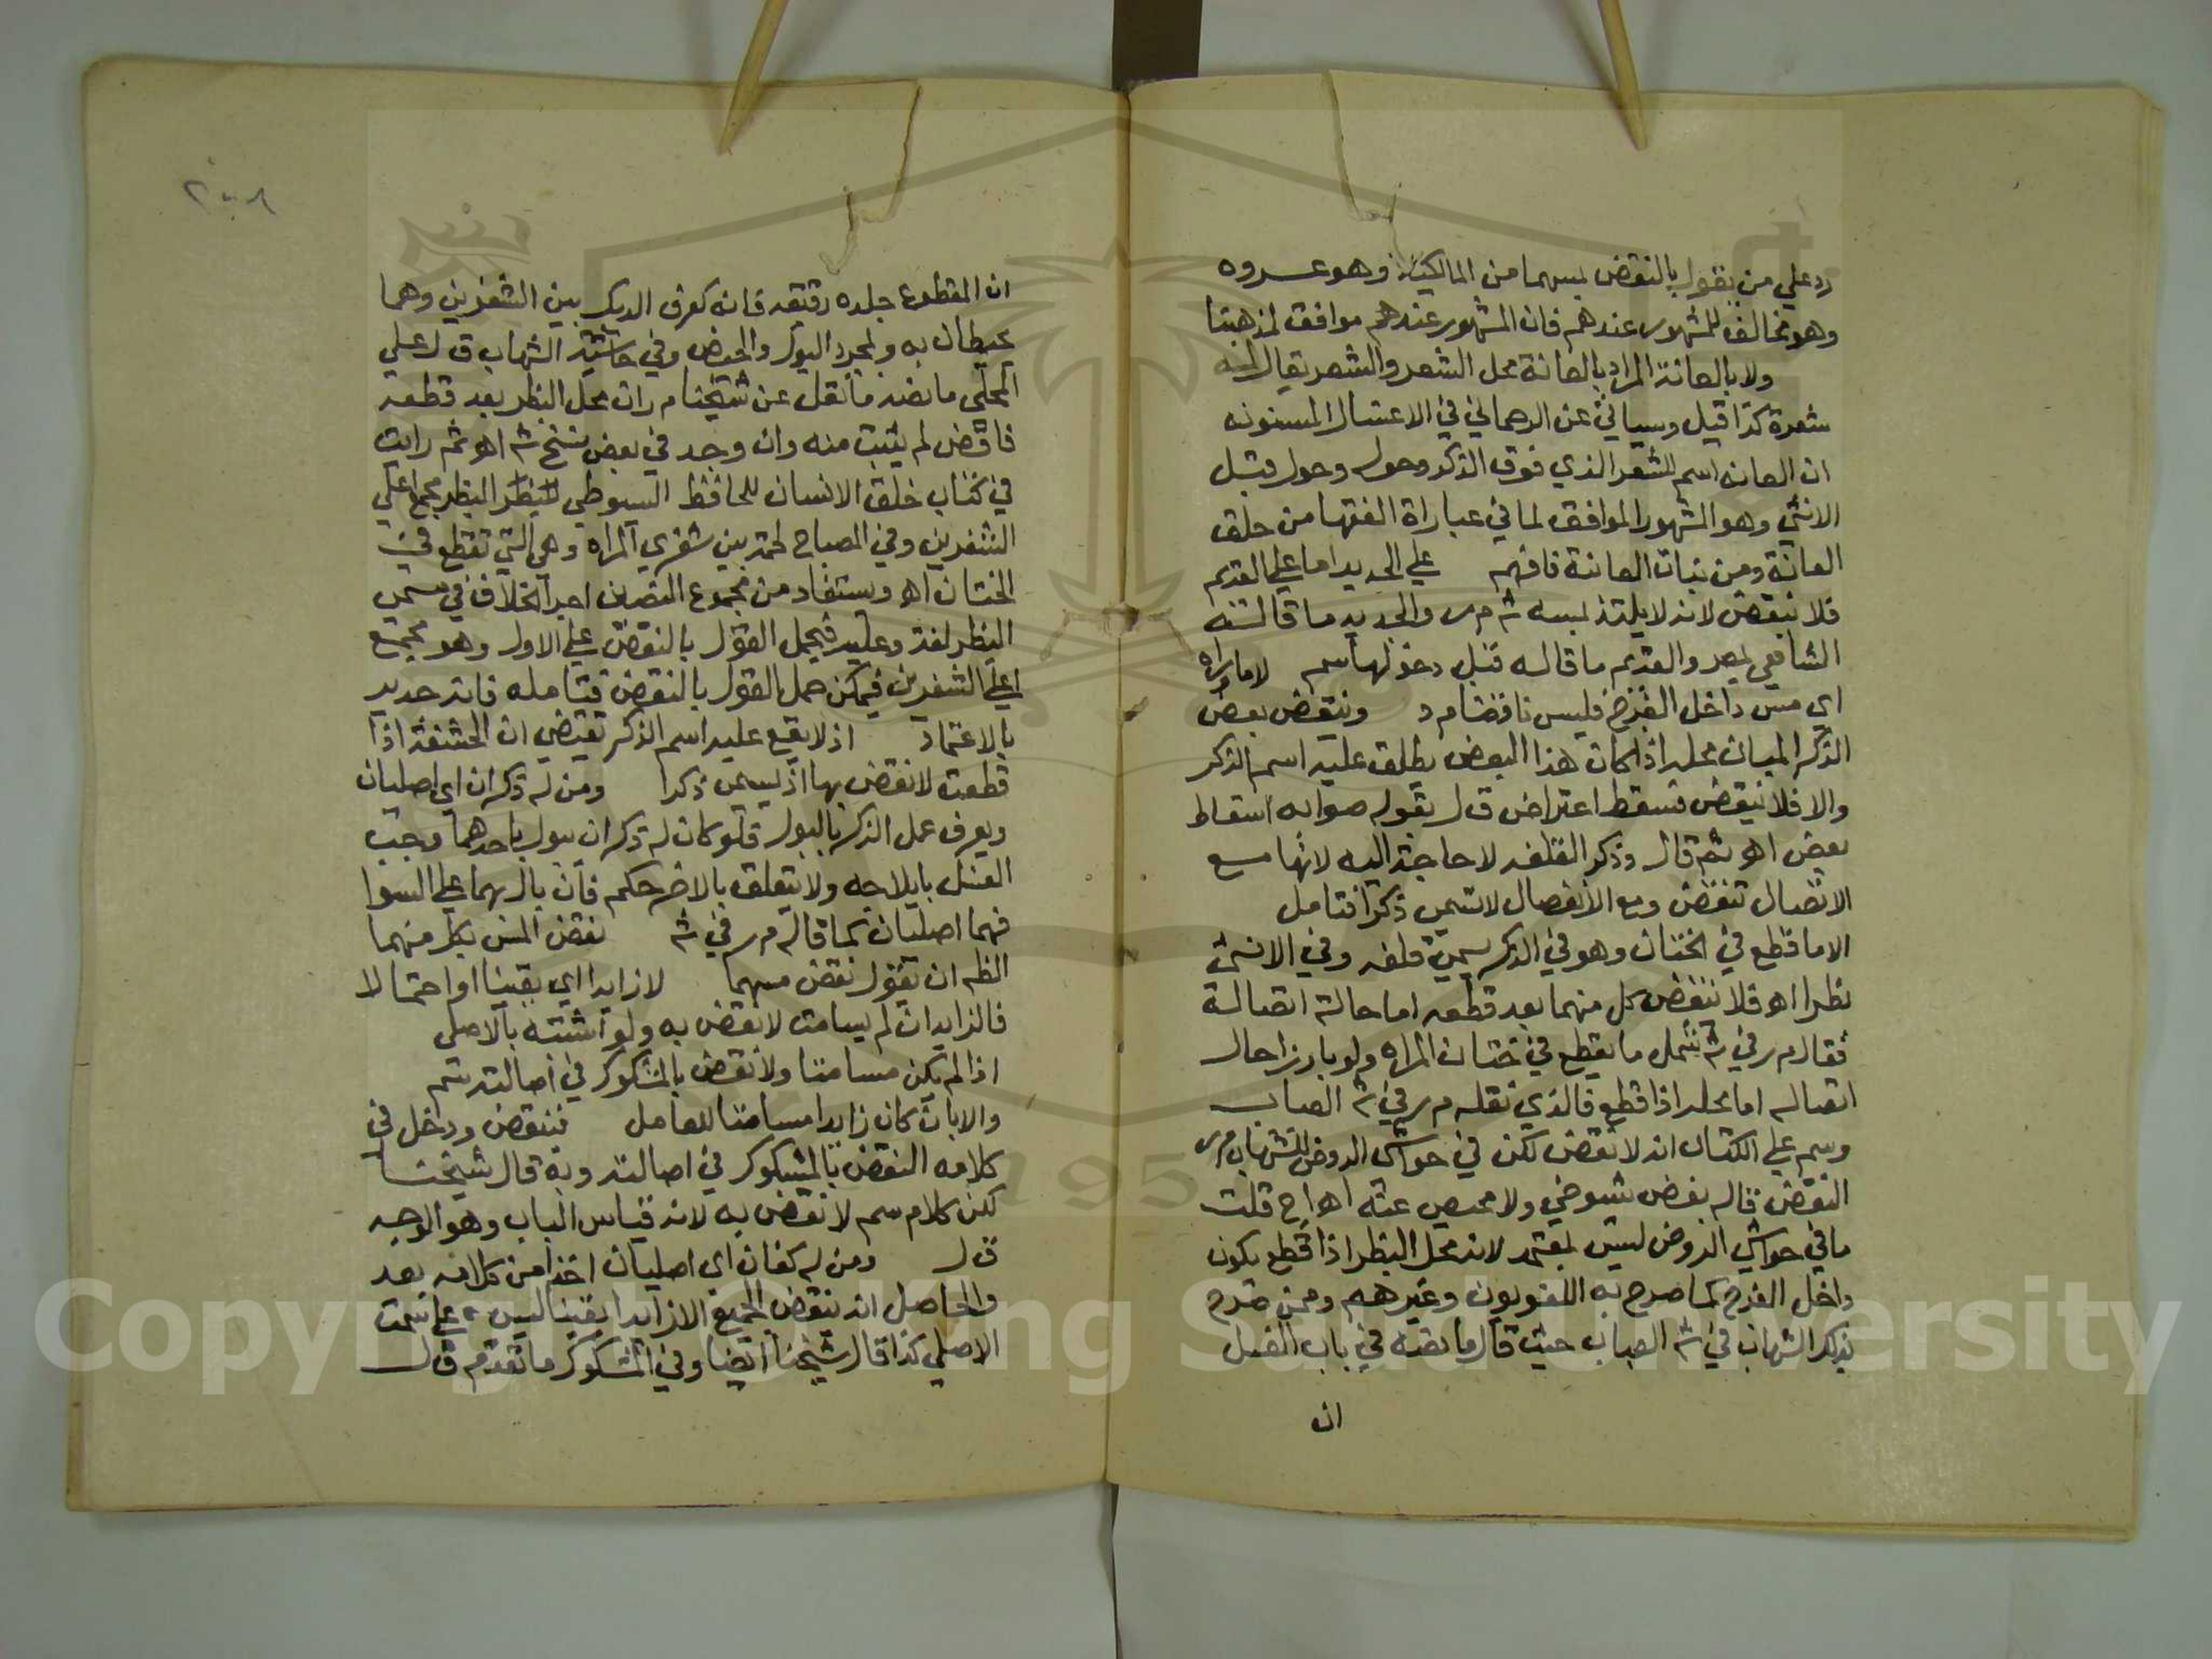 رد علي من يقول بالنقض بمسهما من المالكية وهو عروه
وهو مخالف للمشهور عندهم فان المشهور عندهم موافق لمذهبنا
ولا بالعانة المراد بالعانة محل الشعر والشعر يقال له
شعرة كذا قيل وسياتي عن الرحماني في الاغتسال المسنونه
ان العانه اسم للشعر الذي فوق الذكر وحوله وحول قبل
الانثي وهو المشهور الموافق لما في عباراة الفقها من حلق
العانة ومن نبات العانة فافهم علي الجديد اما علي القديم
فلا ينقض لانه لا يلتذ بمسه ش م ر والجديد ما قاله
الشافعي بمصر والقديم ما قاله قبل دخولها سم لا ما وراه
اي مس داخل الفرج فليس ناقضا م د وينتقض بعض
الذكر المبان محله اذا كان هذا البعض يطلق عليه اسم الذكر
والا فلا ينقض فسقط اعتراض ق ل بقوله صوابه اسقاط
بعض اهو ثم قال وذكر القلفه لا حاجة اليه لانها مع
الاتصال تنقض ومع الانفصال لا تسمي ذكرا فتامل
الا ما قطع في الختان وهو في الذكر يسمي قلفه وفي الانثي
بظرا اهو فلا ينقض كل منهما بعد قطعه اما حالة اتصاله
فقال م ر في ش يشمل ما يقطع في ختان المراه ولو بارزا حال
اتصاله اما محله اذا قطع فالذي نقله م ر في ش العباب
وسم علي الكتاب انه لا نقض لكن في حواشي الروض للشهاب م ر
النقض قاله بعض شيوخي ولا محيص عنه اهو اج قلت
ما في حواشي الروض ليس بمعتمد لانه محل البظر اذا قطع يكون
داخل الفرج كما صرح به اللغويون وغيرهم وممن صرح
بذلك الشهاب في ش العباب حيث قال ما نصه في باب الغسل
ان
ان المقطوع جلده رقيقه فانه كعرف الديك بين الشفرين وهما
يحيطان به وبمجرد البول والحيض وفي حاشية الشهاب ق ل علي
المحلي ما نصه ما نقل عن شيخنا م ر ان محل البظر بعد قطعه
ناقض لم يثبت منه وان وجد في بعض نسخ ش اهو ثم رايت
في كتاب خلق الانسان للحافظ السيوطي البظر مجمع اعلي
الشفرين وفي المصباح لحمة بين شفري المراه وهي التي تقطع في
الختان اهو ويستفاد من مجموع النصين الخلاف في مسمي
البظر لغة وعليه فيحمل القول بالنقض علي الاول وهو مجمع
اعلي الشفرين فيمكن حمل القول بالنقض فتامله فانه جدير
بالاعتماد اذ لا يقع عليه اسم الذكر يقتضي ان الحشفة اذا
قطعت لا نقض بها اذ ليسمي ذكرا ومن له ذكران اي اصليان
ويعرف عمل الذكر بالبول فلو كان له ذكران يبول باحدهما وجب
الغسل بايلاجه ولا يتعلق بالاخر حكم فان بال بهما علي السوا
فهما اصليان كما قاله م ر في ش نقض المس بكل منهما
الظه ان يقول نقض مسهما لا زايدا اي يقينا او احتمالا
فالزايد ان لم يسامت لا نقض به ولو اشتبه بالاصلي
اذا لم يكن مسامتا ولا نقض بالمشكوك في اصالته سم
والا بان كان زايدا مسامتا للعامل فينقض ودخل في
كلامه النقض بالمشكوك في اصالته وبه قال شيخنا
لكن كلام سم لا نقض به لانه قياس الباب وهو الوجه
ق ل ومن له كفان اي اصليان اخذا من كلامه بعد
والحاصل انه ينقض الجميع الا زايدا يقينا ليس علي سمت
الاصلي كذا قال شيخنا ايضا وفي المشكوك ما تقدم ق ل